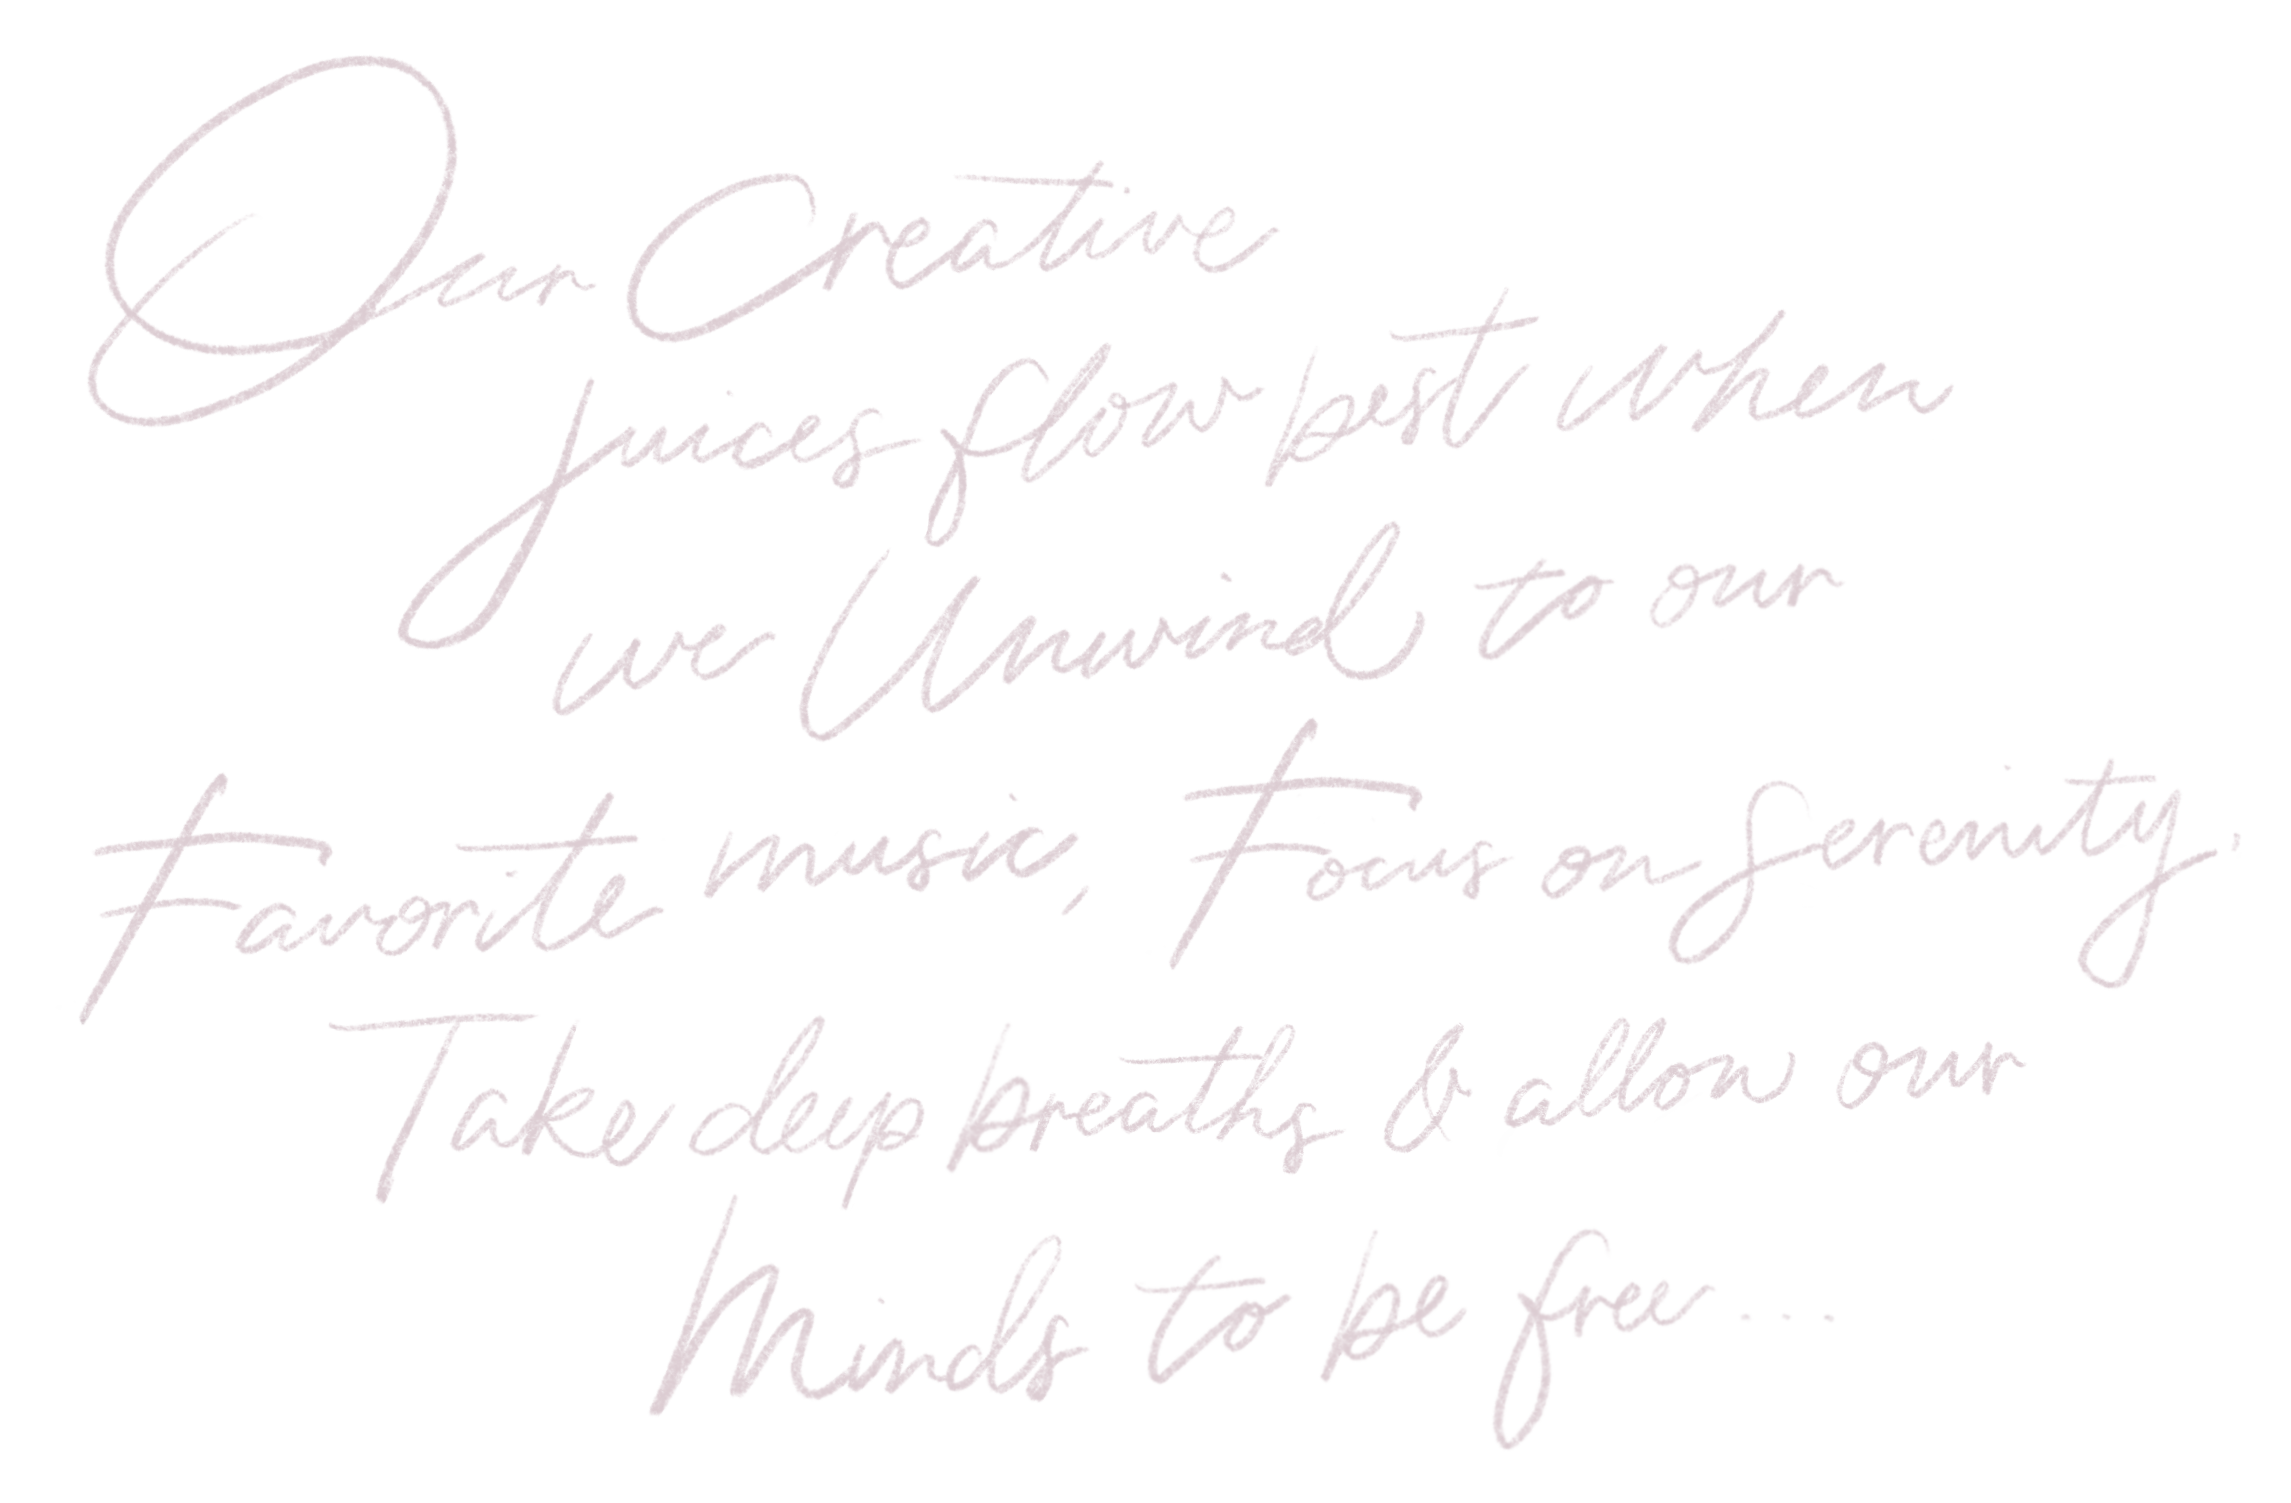 Our Creative
juices flow best when
we Unwind to our
Favorite music, Focus on Serenity,
Take deep breaths & allow our
Minds to be free...